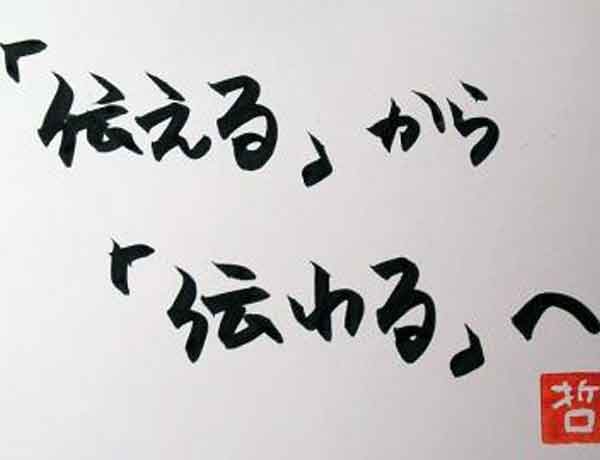 「伝える」から
「伝わる」へ
哲